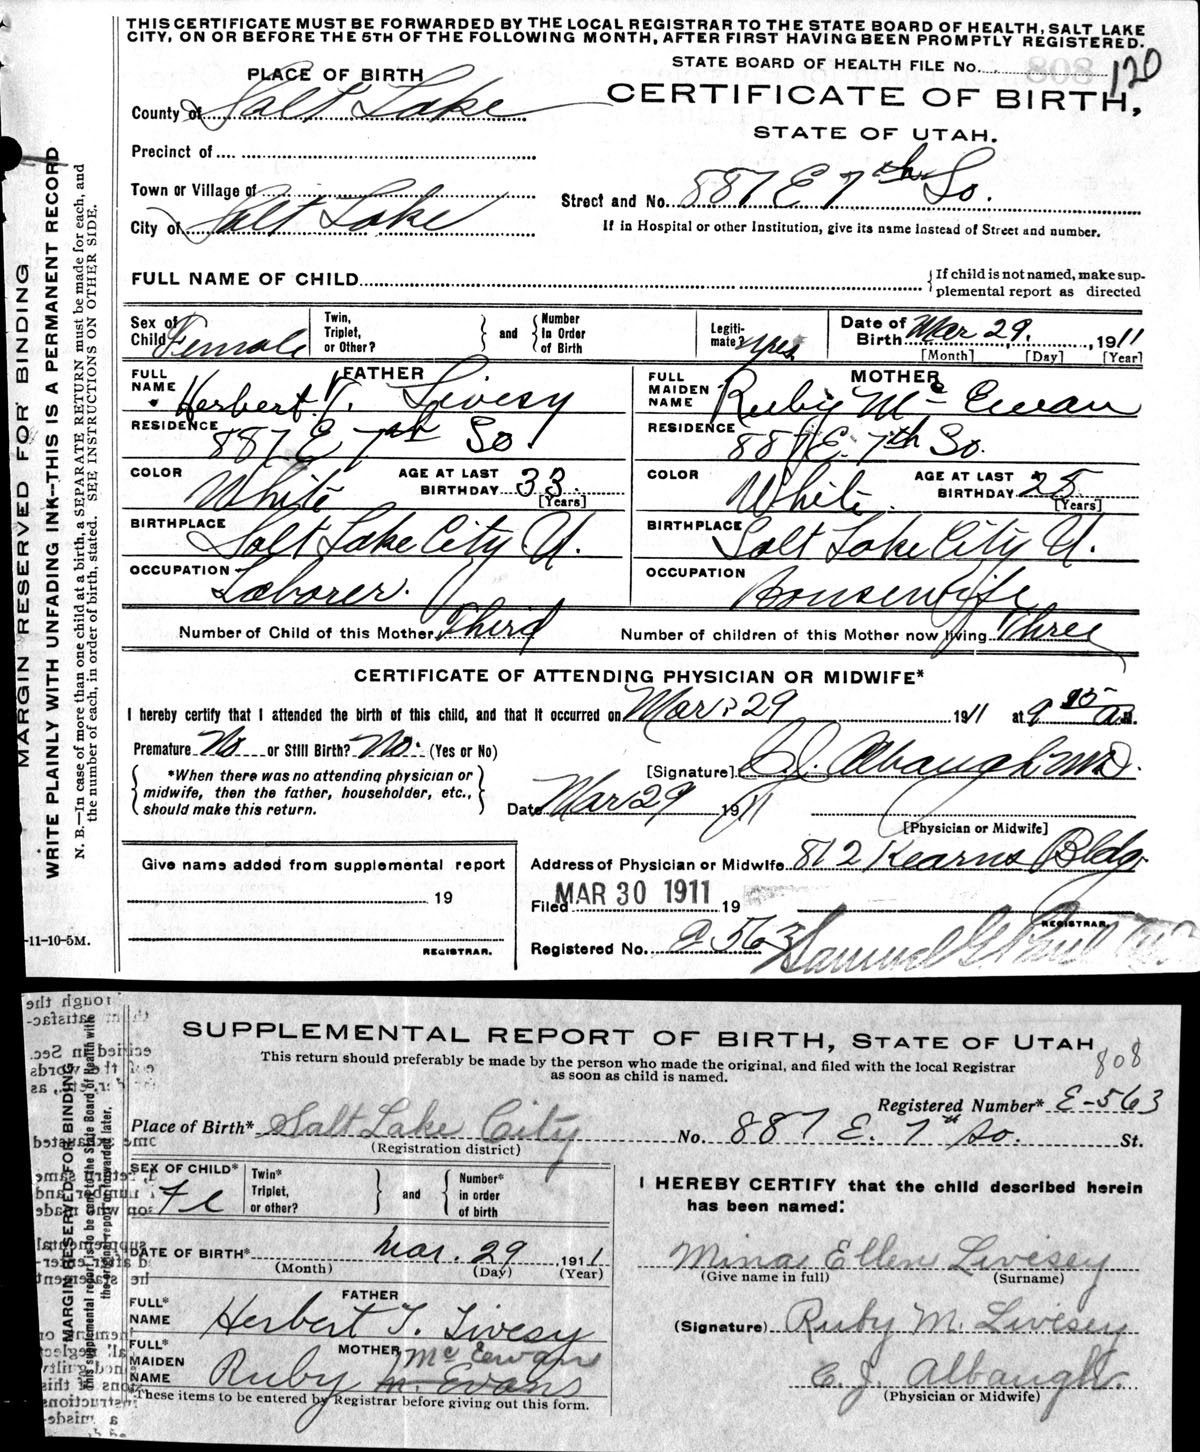 THIS CERTIFICATE MUST BE FORWARDED BY THE LOCAL REGISTRAR TO THE STATE BOARD OF HEALTH, SALT LAKE
CITY, ON OR BEFORE THE 5TH OF THE FOLLOWING MONTH, AFTER FIRST HAVING BEEN PROMPTLY REGISTERED.
STATE BOARD OF HEALTH FILE No. 808 120
PLACE OF BIRTH
CERTIFICATE OF BIRTH,
STATE OF UTAH.
County of Salt Lake
Precinct of
Town or Village of
Street and No. 887 E 7th So.
City of Salt Lake
If in Hospital or other Institution, give its name instead of Street and number.
FULL NAME OF CHILD
{If child is not named, make sup-
plemental report as directed
Sex of Child Female
Twin, Triplet, or Other? } and { Number In Order of Birth
Legiti-mate? yes
Date of Birth Mar 29, 1911
[Month] [Day] [Year]
FATHER
FULL NAME Herbert T. Livesy
RESIDENCE 887 E 7th So.
COLOR White AGE AT LAST BIRTHDAY 33 [Years]
BIRTHPLACE Salt Lake City U.
OCCUPATION Laborer.
MOTHER
FULL MAIDEN NAME Ruby Mc Ewan
RESIDENCE 887 E. 7th So.
COLOR White AGE AT LAST BIRTHDAY 25 [Years]
BIRTHPLACE Salt Lake City U.
OCCUPATION Housewife
Number of Child of this Mother Third Number of children of this Mother now living Three
CERTIFICATE OF ATTENDING PHYSICIAN OR MIDWIFE*
I hereby certify that I attended the birth of this child, and that it occurred on Mar 29 1911 at 9 15 a.m.
Premature No or Still Birth? No. (Yes or No)
{ *When there was no attending physician or
midwife, then the father, householder, etc.,
should make this return. }
[Signature] C. J. Albaugh M.D.
Date Mar 29 1911
[Physician or Midwife]
Give name added from supplemental report
19
REGISTRAR.
Address of Physician or Midwife 812 Kearns Bldg.
Filed MAR 30 1911 19
REGISTRAR.
Registered No. E 563 Samuel G.
MARGIN RESERVED FOR BINDING
WRITE PLAINLY WITH UNFADING INK--THIS IS A PERMANENT RECORD
N. B.—In case of more than one child at a birth, a SEPARATE RETURN must be made for each, and
the number of each, in order of birth, stated. SEE INSTRUCTIONS ON OTHER SIDE.
-11-10-5M.
SUPPLEMENTAL REPORT OF BIRTH, STATE OF UTAH
808
This return should preferably be made by the person who made the original, and filed with the local Registrar
as soon as child is named.
Registered Number* E-563
Place of Birth* Salt Lake City No. 887 E. 7th So. St.
(Registration district)
SEX OF CHILD* Fe
Twin* Triplet, or other? } and { Number* in order of birth
DATE OF BIRTH* Mar. 29, 1911
(Month) (Day) (Year)
FATHER
FULL* NAME Herbert T. Livesy
MOTHER
FULL* MAIDEN NAME Ruby M. Evans Mc Eewan
*These items to be entered by Registrar before giving out this form.
I HEREBY CERTIFY that the child described herein
has been named:
Mina Ellen Livesey
(Give name in full) (Surname)
(Signature) Ruby M. Livesey
C. J. Albaugh.
(Physician or Midwife)
MARGIN RESERVED FOR BINDING
This supplemental report is to be sent to the State Board of Health with
the original report, or forwarded later.